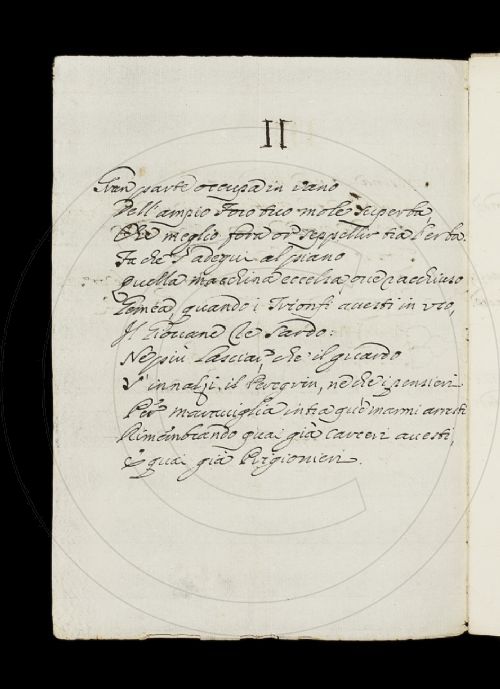 II
Gran parte occupa in vano
Dell'ampio Foro tuo mole superba,
Che meglio fora or seppellir tra l'erba.
Fa che s'adegui al piano
Quella machina eccelsa ov'è racchiuso
Gemea, quando i Trionfi avesti in uso,
Il Giovane Sardo:
Ne più lasciar, che il guardo
V'innalzi il Peregrin, ne che i pensieri
Per maraviglia intra que' marmi arresti
Rimembrando quai già carceri avesti,
E quai già Prigionieri.